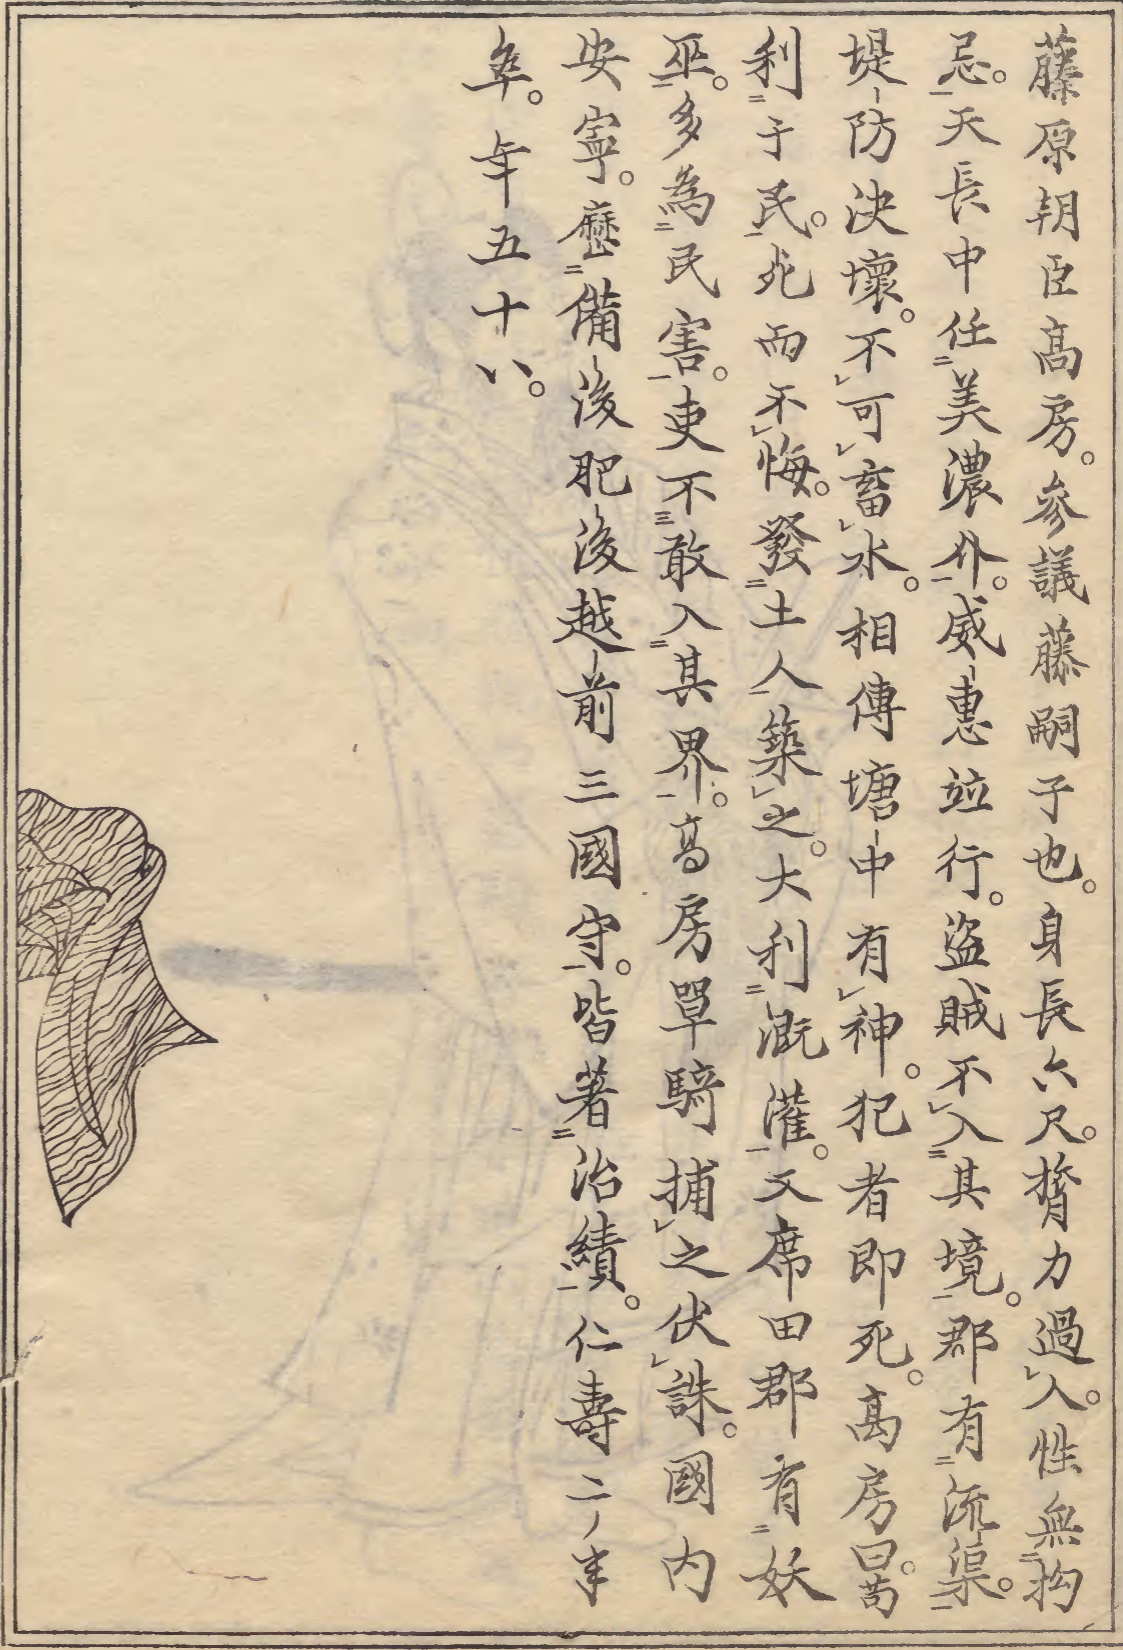 藤原朝臣高房。参議藤嗣子也。身長六尺。膂力過人。性無拘
忌。天長中任美濃介。威惠竝行。盗賊不入其境。郡有流渠。
堤防決壞。不可畜水。相傳塘中有神。犯者即死。高房曰。苟
利于民。死而不悔。發土人築之。大利溉灌。又席田郡有妖
巫。多為民害。吏不敢入其界。高房單騎捕之伏誅。國内
安寧。歷備後肥後越前三國守。皆著治績。仁壽二年
卒。年五十八。